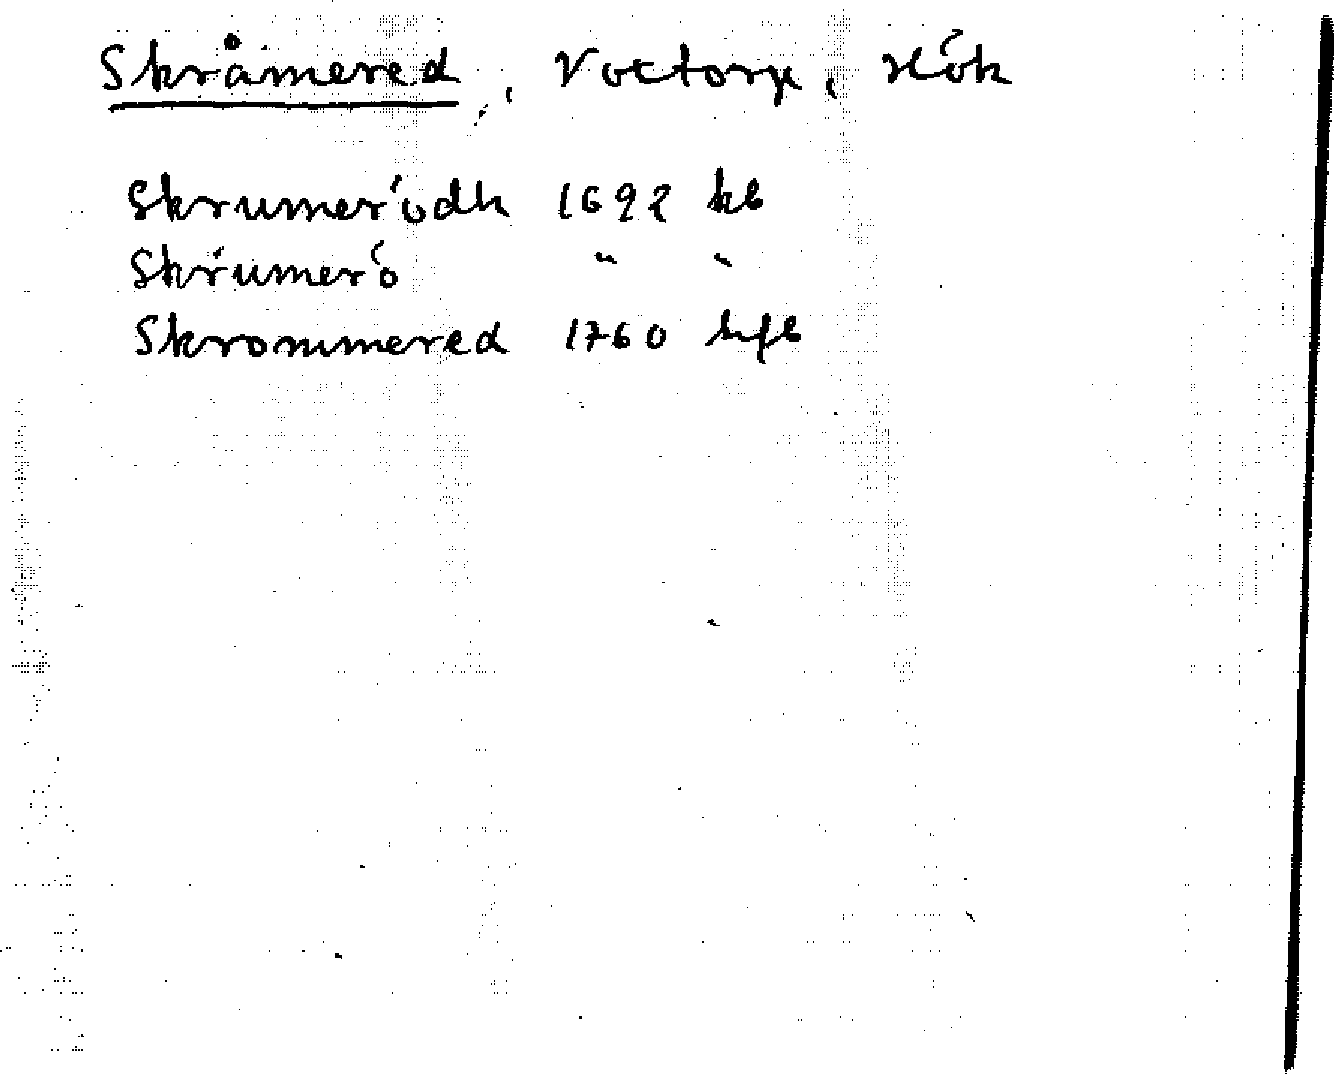 Skråmered, Voxtorp, Hök
Skrumerödh 1692 kb
Skrumerö " "
Skrommered 1760 hfl